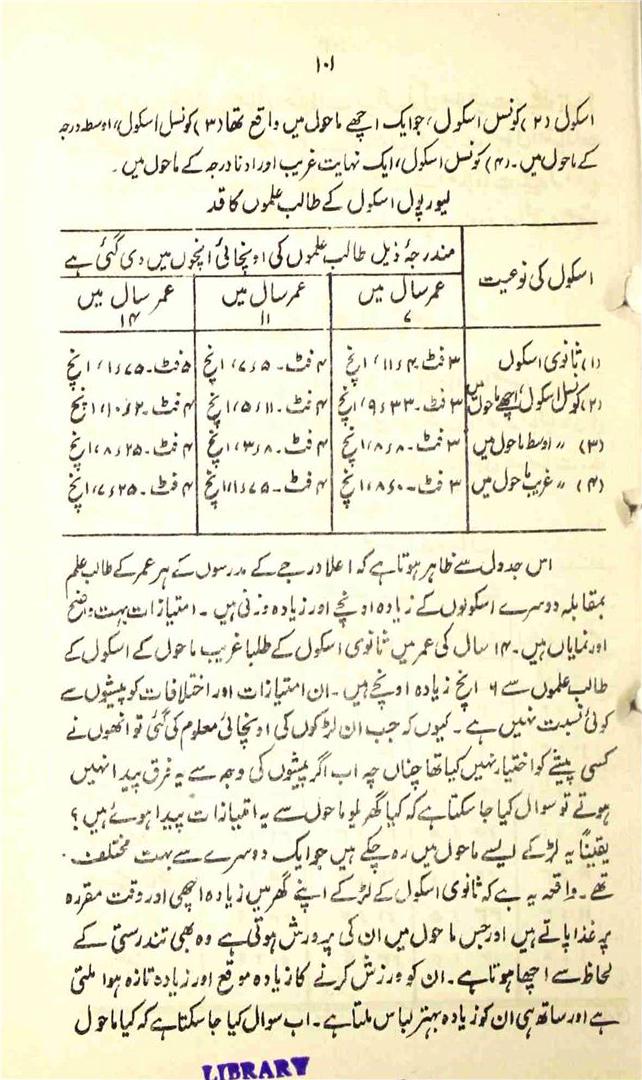 ۱۰۱
اسکول (۲) کونسل اسکول، جو ایک اچھے ماحول میں واقع تھا (۳) کونسل اسکول، اوسط درجہ
کے ماحول میں۔ (۴) کونسل اسکول، ایک نہایت غریب اور ادنا درجہ کے ماحول میں۔
لیورپول اسکول کے طالب علموں کا قد
اسکول کی نوعیت
مندرجۂ ذیل طالب علموں کی اونچائی انچوں میں دی گئی ہے
عمر سال میں ۷
عمر سال میں ۱۱
عمر سال میں ۱۴
(۱) ثانوی اسکول ۳ فٹ۔ ۱۱٫۴ انچ ۴ فٹ۔ ۷٫۵ انچ ۵ فٹ۔ ۱٫۷۵ انچ
(۲) کونسل اسکول، اچھے ماحول میں ۳ فٹ۔ ۹٫۳۳ انچ ۴ فٹ۔ ۵٫۱۱ انچ ۴ فٹ۔ ۱۰٫۲ انچ
(۳) 〃 اوسط ماحول میں ۳ فٹ۔ ۸٫۸ انچ ۴ فٹ۔ ۳٫۸ انچ ۴ فٹ۔ ۸٫۲۵ انچ
(۴) 〃 غریب ماحول میں ۳ فٹ۔ ۸٫۰ انچ ۴ فٹ۔ ۱٫۷۵ انچ ۴ فٹ۔ ۷٫۲۵ انچ
اس جدول سے ظاہر ہوتا ہے کہ اعلا درجے کے مدرسوں کے ہر عمر کے طالب علم
بمقابلہ دوسرے اسکولوں کے زیادہ اونچے اور زیادہ وزنی ہیں۔ امتیازات بہت واضح
اور نمایاں ہیں۔ ۱۴ سال کی عمر میں ثانوی اسکول کے طلبا غریب ماحول کے اسکول کے
طالب علموں سے ۶ انچ زیادہ اونچے ہیں۔ ان امتیازات اور اختلافات کو پیشوں سے
کوئی نسبت نہیں ہے۔ کیوں کہ جب ان لڑکوں کی اونچائی معلوم کی گئی تو انھوں نے
کسی پیشے کو اختیار نہیں کیا تھا چناں چہ اب اگر پیشوں کی وجہ سے یہ فرق پیدا نہیں
ہوتے تو سوال کیا جا سکتا ہے کہ کیا گھریلو ماحول سے یہ امتیازات پیدا ہوئے ہیں؟
یقیناً یہ لڑکے ایسے ماحول میں رہ چکے ہیں جو ایک دوسرے سے بہت مختلف
تھے۔ واقعہ یہ ہے کہ ثانوی اسکول کے لڑکے اپنے گھر میں زیادہ اچھی اور وقت مقررہ
پر غذا پاتے ہیں اور جس ماحول میں ان کی پرورش ہوتی ہے وہ بھی تندرستی کے
لحاظ سے اچھا ہوتا ہے۔ ان کو ورزش کرنے کا زیادہ موقع اور زیادہ تازہ ہوا ملتی
ہے اور ساتھ ہی ان کو زیادہ بہتر لباس ملتا ہے۔ اب سوال کیا جا سکتا ہے کہ کیا ماحول
LIBRARY